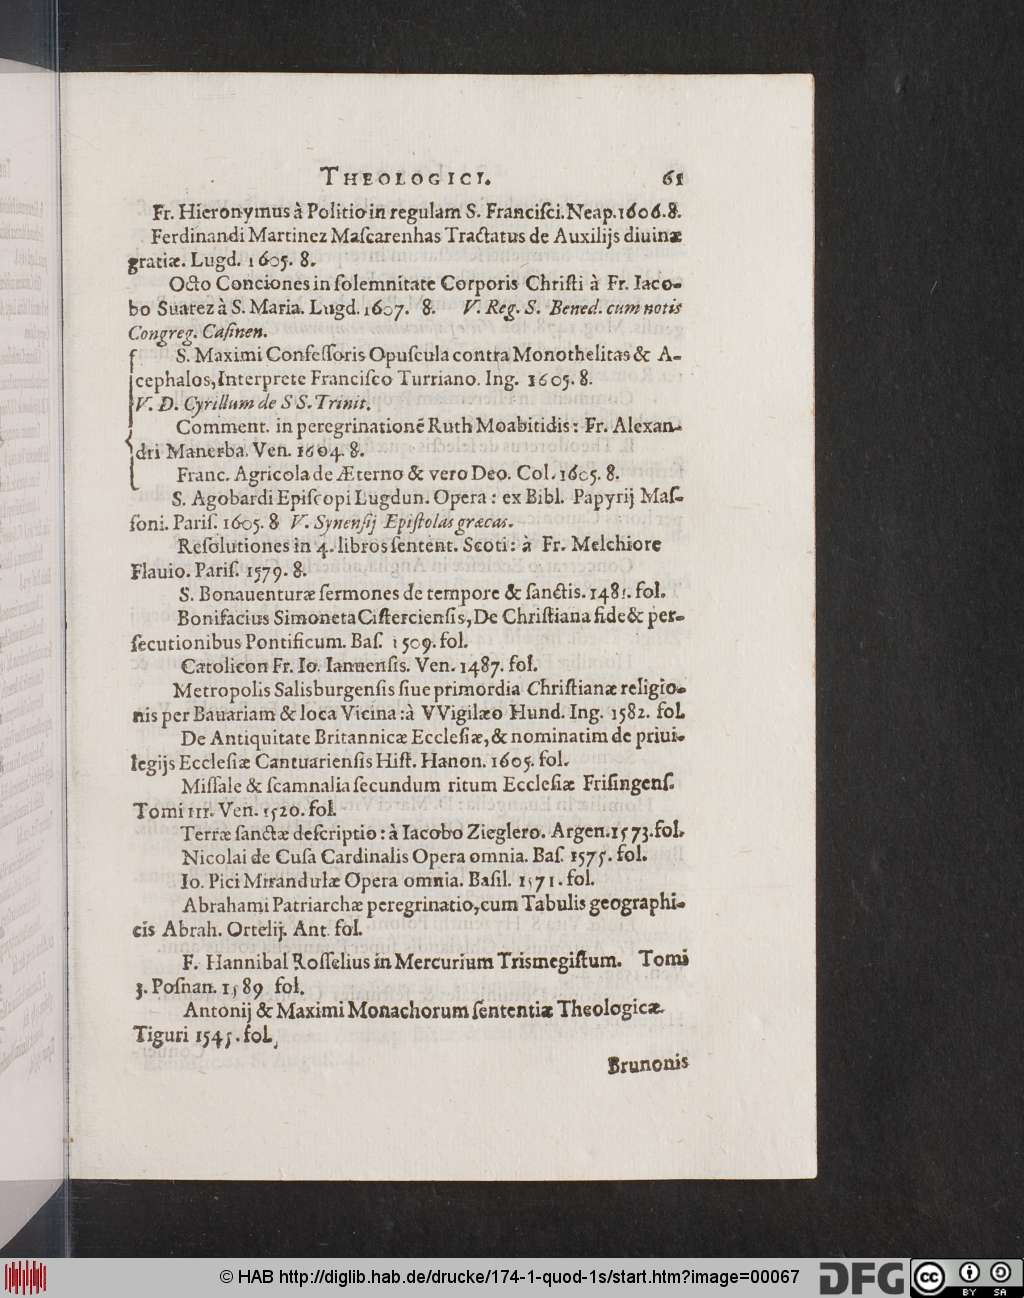 THEOLOGICI. 61
Fr. Hieronymus à Politio in regulam S. Franciſci. Neap. 1606. 8.
Ferdinandi Martinez Maſcarenhas Tractatus de Auxilijs diuinæ
gratiæ. Lugd. 1605. 8.
Octo Conciones in ſolemnitate Corporis Chriſti à Fr. Iaco-
bo Suarez à S. Maria. Lugd. 1607. 8. V. Reg. S. Bened. cum notis
Congreg. Caſinen.
S. Maximi Confeſſoris Opuſcula contra Monothelitas & A-
cephalos, Interprete Franciſco Turriano. Ing. 1605. 8.
V. D. Cyrillum de SS. Trinit.
Comment. in peregrinationē Ruth Moabitidis: Fr. Alexan-
dri Manerba. Ven. 1604. 8.
Franc. Agricola de Æterno & vero Deo. Col. 1605. 8.
S. Agobardi Epiſcopi Lugdun. Opera: ex Bibl. Papyrij Maſ-
ſoni. Pariſ. 1605. 8 V. Synenſij Epiſtolas græcas.
Reſolutiones in 4. libros ſentent. Scoti: à Fr. Melchiore
Flauio. Pariſ. 1579. 8.
S. Bonauenturæ ſermones de tempore & ſanctis. 1481. fol.
Bonifacius Simoneta Ciſtercienſis, De Chriſtiana fide & per-
ſecutionibus Pontificum. Baſ. 1509. fol.
Catolicon Fr. Io. Ianuenſis. Ven. 1487. fol.
Metropolis Salisburgenſis ſiue primordia Chriſtianæ religio-
nis per Bauariam & loca Vicina: à VVigilæo Hund. Ing. 1582. fol.
De Antiquitate Britannicæ Eccleſiæ, & nominatim de priui-
legijs Eccleſiæ Cantuarienſis Hiſt. Hanon. 1605. fol.
Miſſale & ſcamnalia ſecundum ritum Eccleſiæ Friſingenſ.
Tomi III. Ven. 1520. fol.
Terræ ſanctæ deſcriptio: à Iacobo Zieglero. Argen. 1573. fol.
Nicolai de Cuſa Cardinalis Opera omnia. Baſ. 1575. fol.
Io. Pici Mirandulæ Opera omnia. Baſil. 1571. fol.
Abrahami Patriarchæ peregrinatio, cum Tabulis geographi-
cis Abrah. Ortelij. Ant. fol.
F. Hannibal Roſſelius in Mercurium Trismegiſtum. Tomi
3. Poſnan. 1589 fol.
Antonij & Maximi Monachorum ſententiæ Theologicæ.
Tiguri 1545. fol.
Brunonis
© HAB http://diglib.hab.de/drucke/174-1-quod-1s/start.htm?image=00067
DFG
cc BY SA